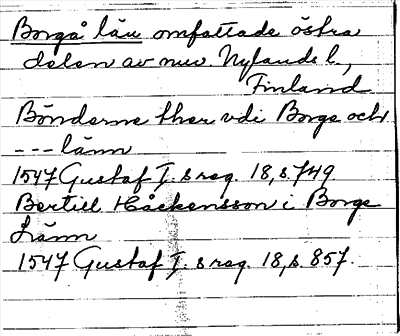 Borgå län omfattade östra
delen av nuv. Nylands l.,
Finland
Bönderne ther vdi Borge och
--- länn
1547 Gustaf I:s reg. 18, s. 749
Bertill Håckensson i Borge
Länn
1547 Gustaf I:s reg. 18, s. 857.